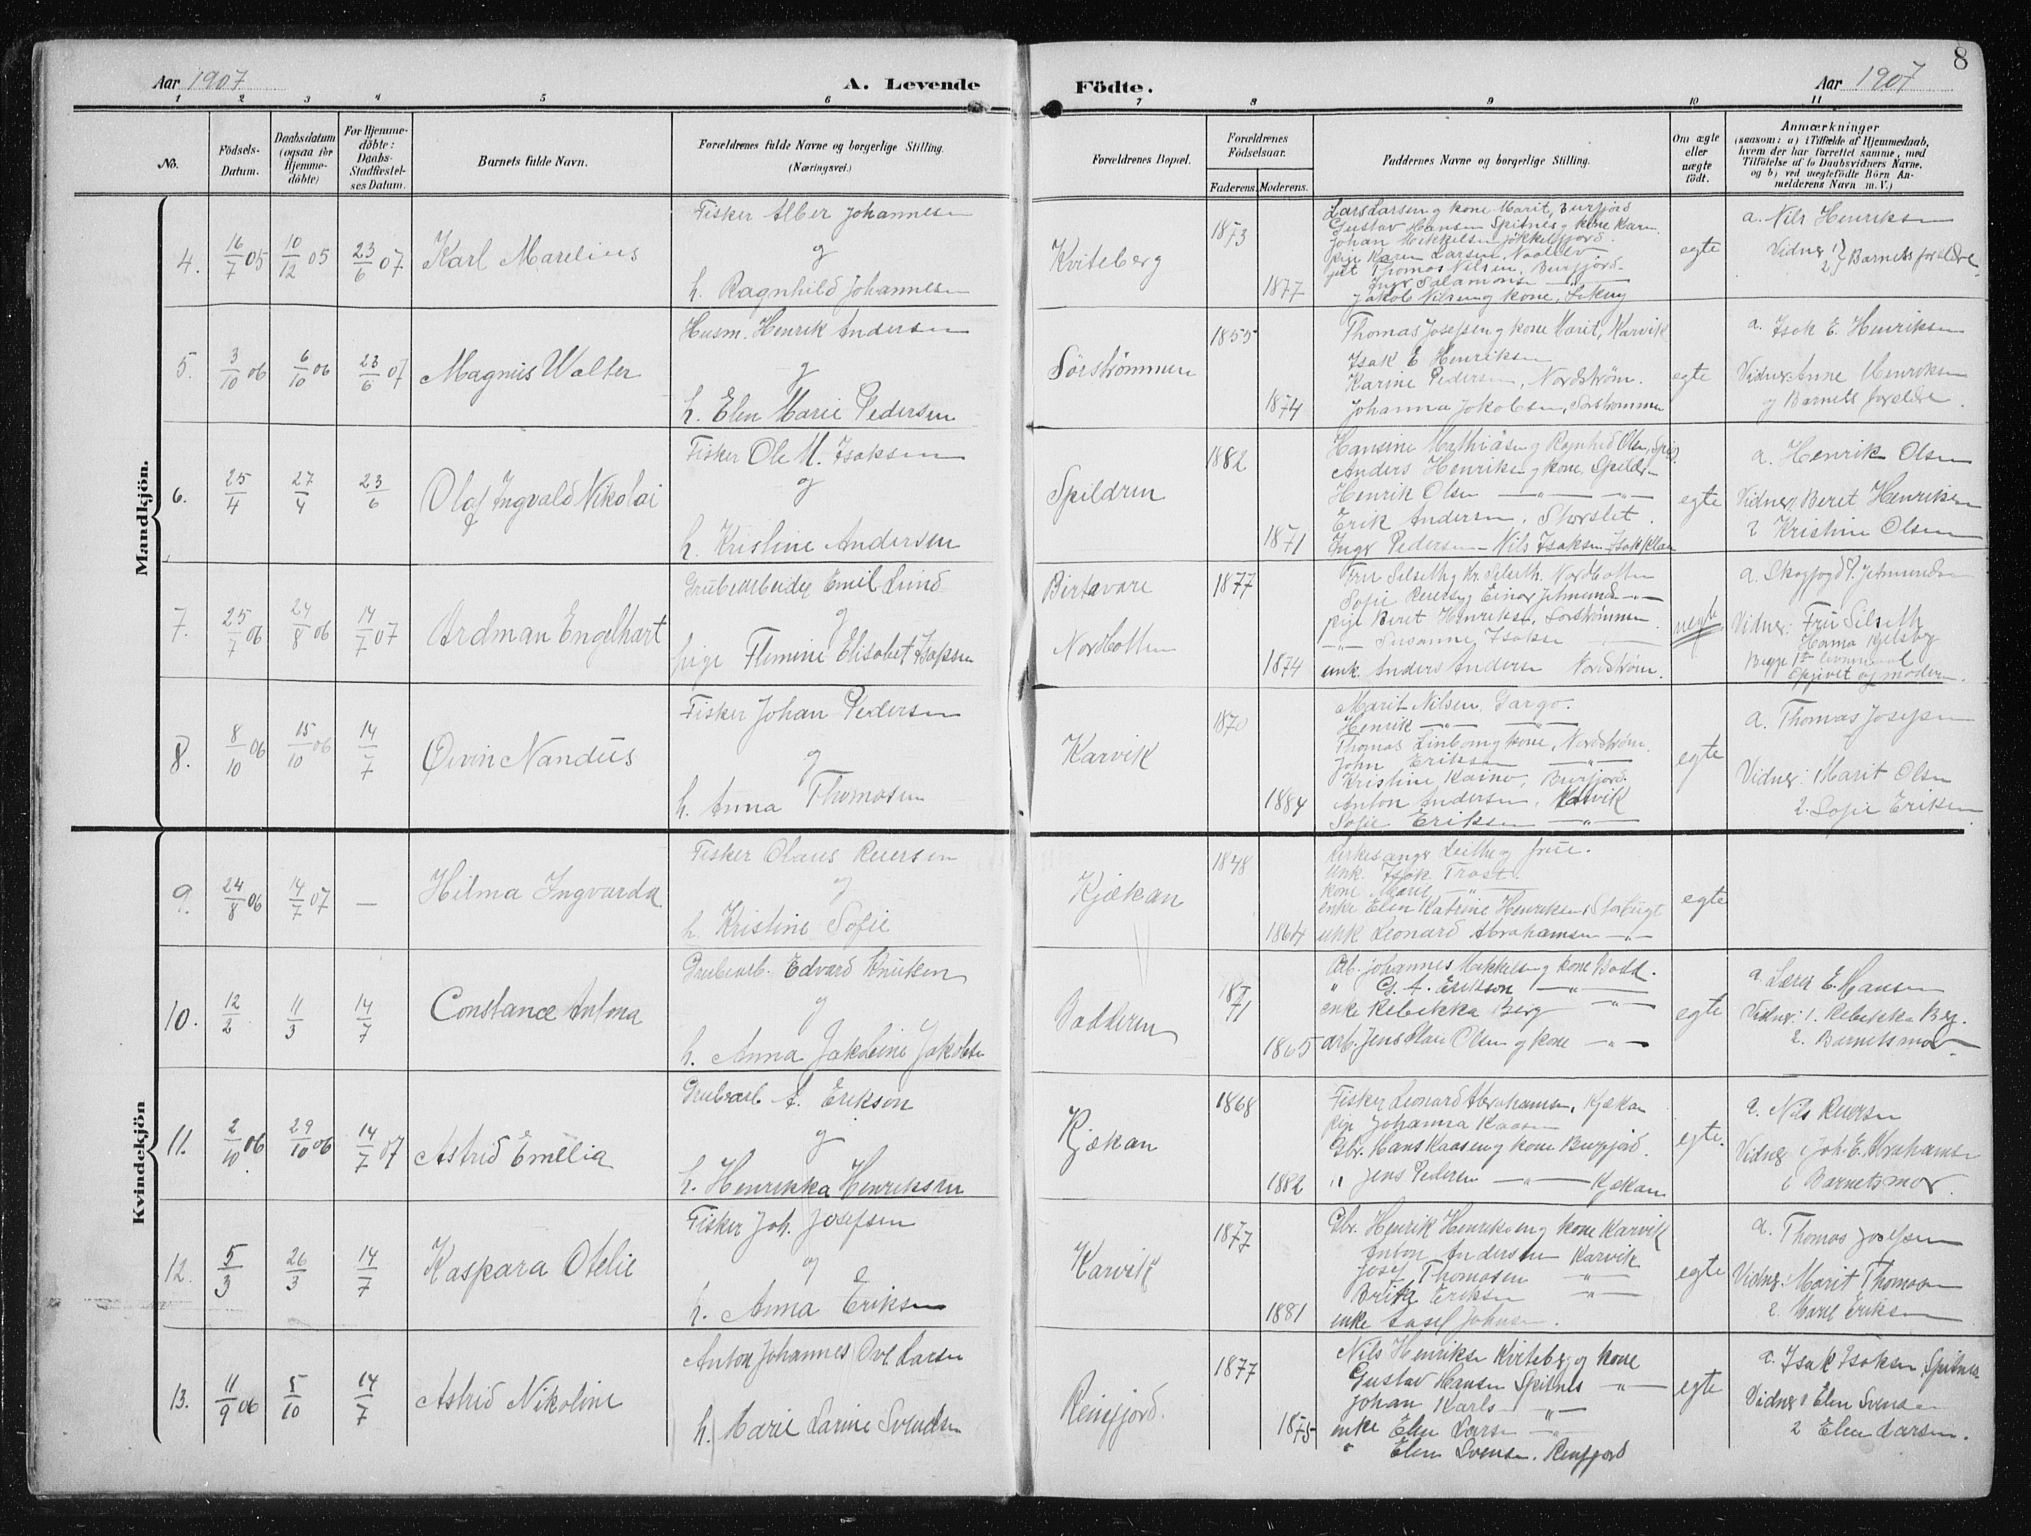 8
Aar 1907
A. Levende
Födte.
Aar 1907
1 2 3 4 5 6 7 8 9 10 11
No.
Födsels-
Datum.
Daabsdatum
(ogsaa for
Hjemme-
döbte)
For Hjemme-
döbte:
Daabs-
Stadfæstel-
ses Datum.
Barnets fulde Navn.
Forældrenes fulde Navne og borgerlige Stilling.
(Næringsvei.)
Forældrenes Bopæl.
Forældrenes
Födselsaar.
Faderens. Moderens.
Faddernes Navne og borgerlige Stilling.
Om ægte
eller
uægte
födt.
Anmærkninger
(saasom: a) i Tilfælde af Hjemmedaab,
hvem der har forrettet samme, med
Tilföielse af to Daabsvidners Navne,
og b) ved uægtefödte Börn An-
melderens Navn m. V.)
Mandkjön.
4. 16/7 05 10/12 05 23/6 07 Karl Marelius
Fisker Alber Johannesen
og
h. Ragnhild Johannesen
Kviteberg
1873
1877
Lars Larsen og kone Marit, Burfjord
Gustav Hansen Spitnes og kone Karen
Johan Mikkelsen Jøkkelfjord.
pige Karen Larsen
Thomas Nilsen, Burfjord
Jakob Nilsen og kone,
egte
a. Nils Henriksen
Vidner 1 2 } Barnets forældre
5. 3/10 06 6/10 06 23/6 07 Magnus Walter
Husm. Henrik Andersen
og
h. Elen Marie Pedersen
Sørstrømmen
1855
1874
Thomas Josefsen og kone Marit, Karvik
Isak E Henriksen
Karine Pedersen, Nordstrøm.
Johanna Jakobsen, Sørstrømmen
egte
a. Isak E. Henriksen
Vidner: Anne Henriksen
og Barnets forældre.
6. 25/4 27/4 23/6 Olaf Ingvald Nikolai
Fisker Ole M. Isaksen
og
h. Kristine Andersen
Spildren
1882
1871
Hansine Mathiasen og Ragnhild Olsen,
Anders Henriksen og kone, Spildren
Henrik Olsen — " — — " —
Erik Andersen, Storslet.
Inger Pedersen - Nils Isaksen
egte
a. Henrik Olsen
Vidner, Beret Henriksen
2 Kristine Olsen
7. 25/7 06 24/8 06 14/7 07 Ardman Engelhart
Grubearbeider Emil Lund
og
pige Flemine Elisabet Isaksen
Birtavare
Nordbotten
1877
1874
Fru Selseth og Kr. Selseth. Nordbotten
Sofie og Einar — " —
pige Beret Henriksen, Sørstrømmen
— " — Susanne Isaksen — " —
unk. Anders Andersen Nordstrøm.
uegte
Vidner: Fru Selseth
opgivet og moderen.
8. 8/10 06 15/10 06 14/7 Øivin Nandus
Fisker Johan Pedersen
og
h. Anna Thomasen
Karvik
1870
1884
Marit Nilsen, Gargo.
Henrik — " — — " —
Thomas Linbom og kone, Nordstrøm.
John Eriksen — " —
Kristine Kaino, Burfjord.
Anton Andersen, Karvik
Sofie Eriksen — " —
egte
a. Thomas Josefsen
Vidner: 1 Marit Olsen
2. Sofie Eriksen
Kvindekjön
9. 24/8 06 14/7 07 — Hilma Ingvarda
Fisker Olaus Reiersen
og
h. Kristine Sofie
Kjækan
1848
1864
Kirkesanger og frue.
Unk. Isak Trast.
kone Marit — " —
enke Elen Katrine Henriksen, Storbugt
unk Leonard Abrahamsen — " —
egte
10. 12/2 11/3 14/7 Constance Antona
Grubearb. Edvard Knutsen
og
h. Anna Jakobine Jakobsen
Badderen
1871
1865
Arb. Johannes Mikkelsen og kone Badd.
" G. A. Erikson — " — — " —
enke Rebekka Berg — " —
arb. Jens Olai Olsen og kone — " —
egte
a. Lærer E. Hansen
Vidner: 1. Rebekka Berg.
2. Barnets mor.
11. 2/10 06 29/10 06 14/7 07 Astrid Emelia
Grubearb A. Erikson
og
h. Henrikka Henriksen
Kjækan
1868
1882
Fisker Leonard Abrahamsen, Kjækan
pige Johanna Kaasen
Gbr. Hans Kaasen og kone Burfjord.
" Jens Pedersen — " — Kjækan
egte.
a. Nils Reiersen
Vidner 1 Joh. E. Abrahamsen
Barnets mor.
12. 5/3 26/3 14/7 Kaspara Otelie
Fisker Joh. Josefsen
og
h. Anna Eriksen
Karvik
1877
1881
Gbr. Henrik Henriksen og kone Karvik
Anton Andersen Karvik
Josef Thomasen — " —
Brita Eriksen — " —
enke Johnsen.
egte
a. Thomas Josefsen
Vidner: Marit Thomasen
2. Marit Eriksen
13. 11/9 06 5/10 14/7 Astrid Nikoline
Anton Johannes Ove Larsen
h. Marie Larine Svendsen
Reinfjord.
1877
1875
Nils Henriksen Kviteberg og kone
Gustav Hansen Spitnes — " —
Johan Karls — " —
enke Elen Larsen — " —
" Elen Svensen. Reinfjord
egte
a. Isak Isaksen, Spitnes
Vidner 1 Elen Svensen
2 Elen Larsen.